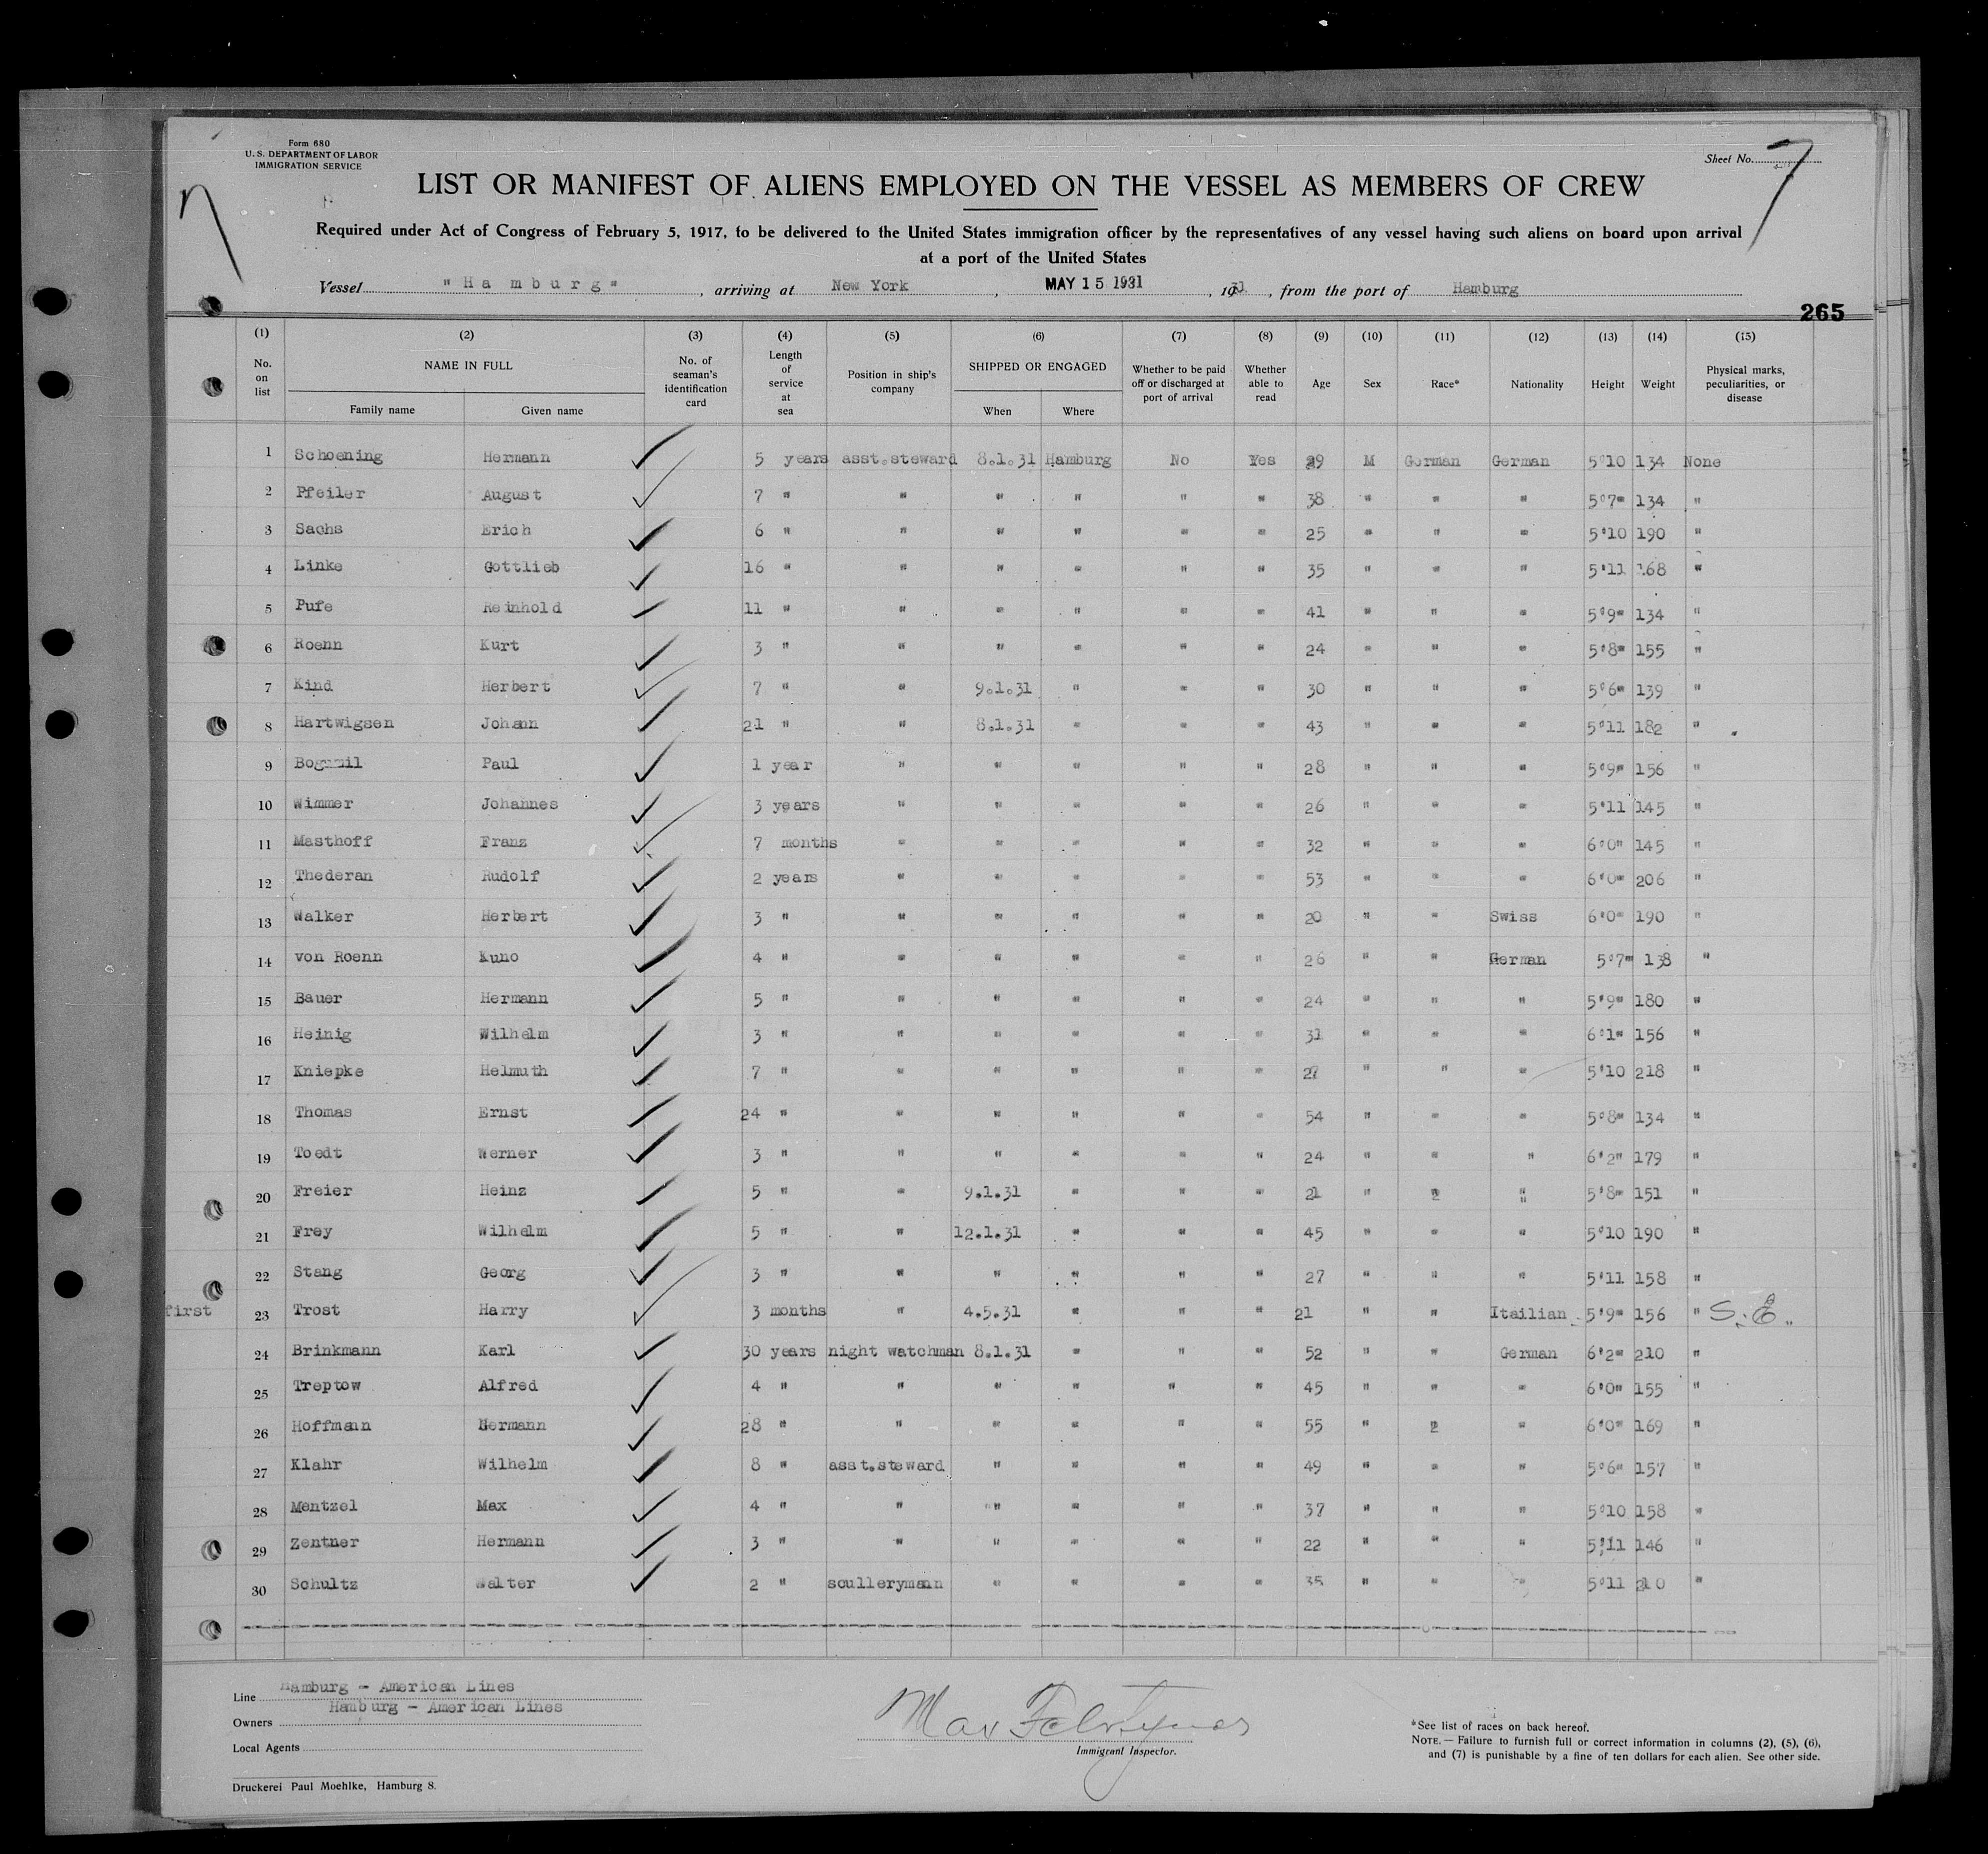 Form 680
U. S. DEPARTMENT OF LABOR
IMMIGRATION SERVICE
Sheet No. 7
7
LIST OR MANIFEST OF ALIENS EMPLOYED ON THE VESSEL AS MEMBERS OF CREW
Required under Act of Congress of February 5, 1917, to be delivered to the United States immigration officer by the representatives of any vessel having such aliens on board upon arrival
at a port of the United States
Vessel "Hamburg", arriving at New York, MAY 15 1931, 1931, from the port of Hamburg
265
(1) (2) (3) (4) (5) (6) (7) (8) (9) (10) (11) (12) (13) (14) (15)
No. on list NAME IN FULL Family name Given name No. of seaman's identification card Length of service at sea Position in ship's company SHIPPED OR ENGAGED When Where Whether to be paid off or discharged at port of arrival Whether able to read Age Sex Race* Nationality Height Weight Physical marks, peculiarities, or disease
1 Schoening Hermann 5 years asst.steward 8.1.31 Hamburg No Yes 29 M German German 5'10 134 None
2 Pfeiler August 7 " " " " " " 38 " " " 5'7" 134 "
3 Sachs Erich 6 " " " " " " 25 " " " 5'10 190 "
4 Linke Gottlieb 16 " " " " " " 35 " " " 5'11 168 "
5 Pufe Reinhold 11 " " " " " " 41 " " " 5'9" 134 "
6 Roenn Kurt 3 " " " " " " 24 " " " 5'8" 155 "
7 Kind Herbert 7 " " 9.1.31 " " " 30 " " " 5'6" 139 "
8 Hartwigsen Johann 21 " " 8.1.31 " " " 43 " " " 5'11 182 "
9 Bogumil Paul 1 year " " " " " 28 " " " 5'9" 156 "
10 Wimmer Johannes 3 years " " " " " 26 " " " 5'11 145 "
11 Masthoff Franz 7 months " " " " " 32 " " " 6'0" 145 "
12 Thederan Rudolf 2 years " " " " " 53 " " " 6'0" 206 "
13 Walker Herbert 3 " " " " " " 20 " " Swiss 6'0" 190 "
14 von Roenn Kuno 4 " " " " " " 26 " " German 5'7" 138 "
15 Bauer Hermann 5 " " " " " " 24 " " " 5'9" 180 "
16 Heinig Wilhelm 3 " " " " " " 31 " " " 6'1" 156 "
17 Kniepke Helmuth 7 " " " " " " 27 " " " 5'10 218 "
18 Thomas Ernst 24 " " " " " " 54 " " " 5'8" 134 "
19 Toedt Werner 3 " " " " " " 24 " " " 6'2" 179 "
20 Freier Heinz 5 " " 9.1.31 " " " 21 " " " 5'8" 151 "
21 Frey Wilhelm 5 " " 12.1.31 " " " 45 " " " 5'10 190 "
22 Stang Georg 3 " " " " " " 27 " " " 5'11 158 "
first 23 Trost Harry 3 months " 4.5.31 " " " 21 " " Itailian 5'9" 156 " S.E.
24 Brinkmann Karl 30 years night watchman 8.1.31 " " " 52 " " German 6'2" 210 "
25 Treptow Alfred 4 " " " " " " 45 " " " 6'0" 155 "
26 Hoffmann Hermann 28 " " " " " " 55 " 2 " 6'0" 169 "
27 Klahr Wilhelm 8 " asst.steward " " " " 49 " " " 5'6" 157 "
28 Mentzel Max 4 " " " " " " 37 " " " 5'10 158 "
29 Zentner Hermann 3 " " " " " " 22 " " " 5'11 146 "
30 Schultz Walter 2 " scullerymann " " " " 35 " " " 5'11 210 "
Line Hamburg - American Lines
Owners Hamburg - American Lines
Local Agents
Druckerei Paul Moehlke, Hamburg 8.
Max
Immigrant Inspector.
*See list of races on back hereof.
NOTE.— Failure to furnish full or correct information in columns (2), (5), (6),
and (7) is punishable by a fine of ten dollars for each alien. See other side.